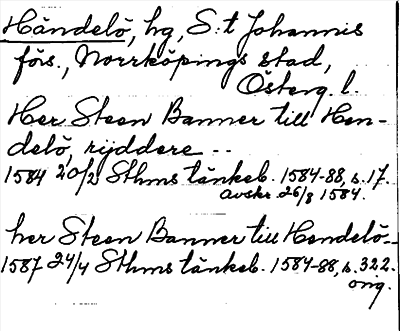 Händelö, hg, S:t Johannis
förs., Norrköpings stad,
Österg. l.
Her Steen Banner till Hen-
delö, rijddere --
1584 20/2 Sthms tänkeb. 1584-88, s. 17.
avskr. 26/8 1584.
her Steen Banner till Hendelö--
1587 24/4 Sthms tänkeb. 1584-88, s. 322.
orig.